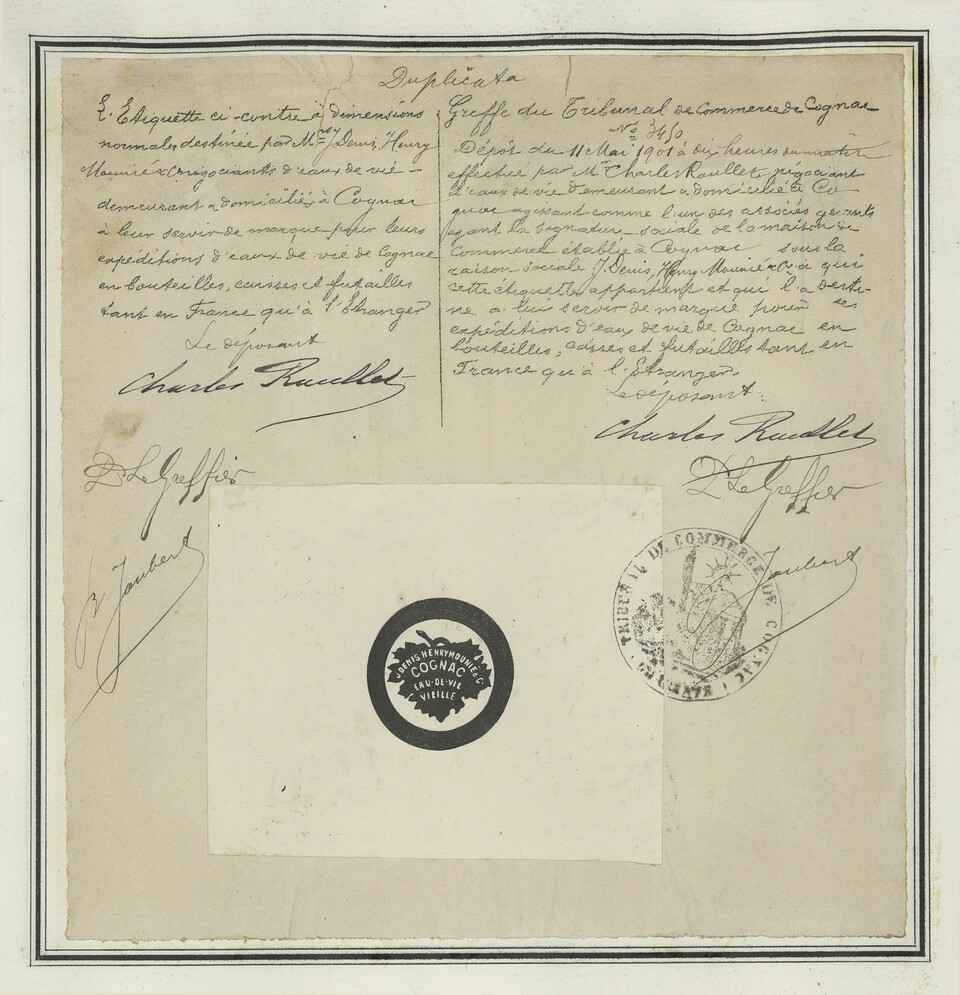 Duplicata
L'Etiquette ci-contre à dimensions
normales destinée par Mrs J. Denis, Henry
Mounié & Co négociants d'eaux de vie -
demeurant & domiciliés à Cognac
à leur servir de marque pour leurs
expéditions d'eaux de vie de Cognac
en bouteilles, caisses et futailles
tant en France qu'à l'Etranger
Le déposant
Charles Raullet
Pr Le Greffier
Joubert
Greffe du Tribunal de Commerce de Cognac
No 3450
Dépôt du 11 Mai 1901 à dix heures du matin
effectué par Mr Charles Raullet, négociant
d'eaux de vie demeurant & domicilié à Co
gnac agissant comme l'un des associés gérants
ayant la signature sociale de la maison de
commerce établie à Cognac sous la
raison sociale J. Denis, Henry Mounié & Co à qui
cette étiquette appartient et qui l'a desti-
né à lui servir de marque pour ses
expéditions d'eaux de vie de Cognac en
bouteilles, caisses et futailles tant en
France qu'à l'Etranger.
Le déposant.
Charles Raullet
Pr Le Greffier
Joubert
TRIBUNAL DE COMMERCE DE COGNAC
CHARENTE
J. DENIS HENRY MOUNIÉ & Co
COGNAC
EAU-DE-VIE
VIEILLE